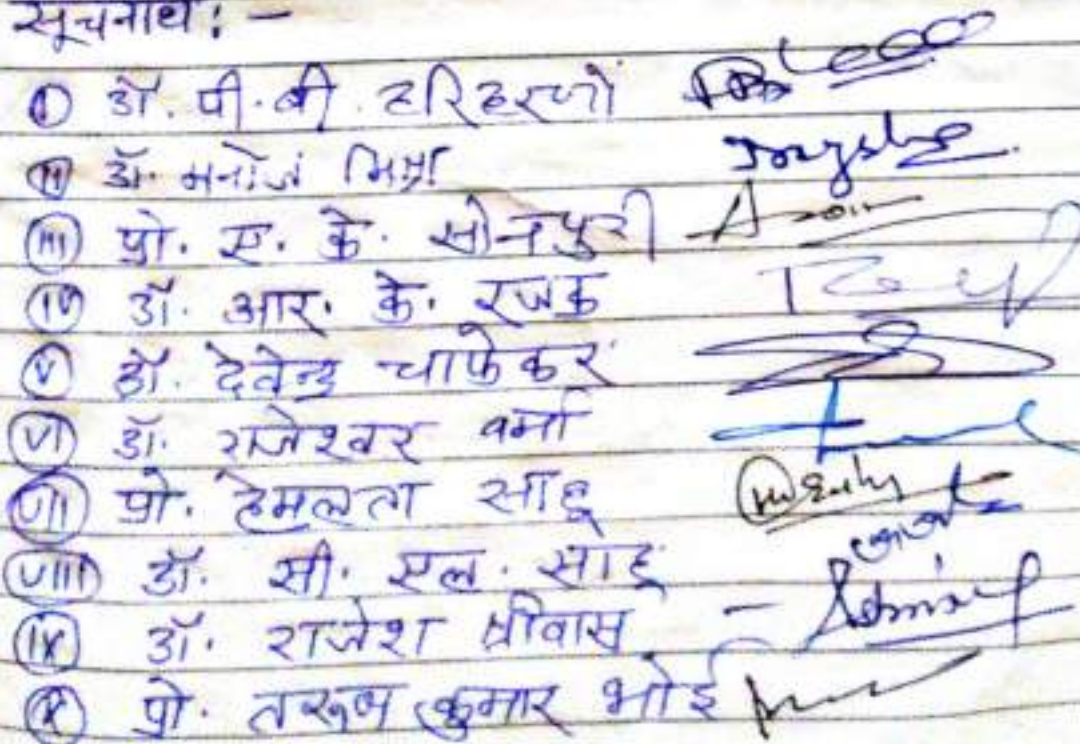 सूचनार्थ : -
(I) डॉ. पी. बी. हरिहरणो
(II) डॉ. मनोज मिश्रा
(III) प्रो. ए. के. सोनपुरी
(IV) डॉ. आर. के. रजक
(V) डॉ. देवेन्द्र चाफेकर
(VI) डॉ. राजेश्वर वर्मा
(VII) प्रो. हेमलता साहू
(VIII) डॉ. सी. एल. साहू
(IX) डॉ. राजेश श्रीवास -
(X) प्रो. तरूण कुमार भोई